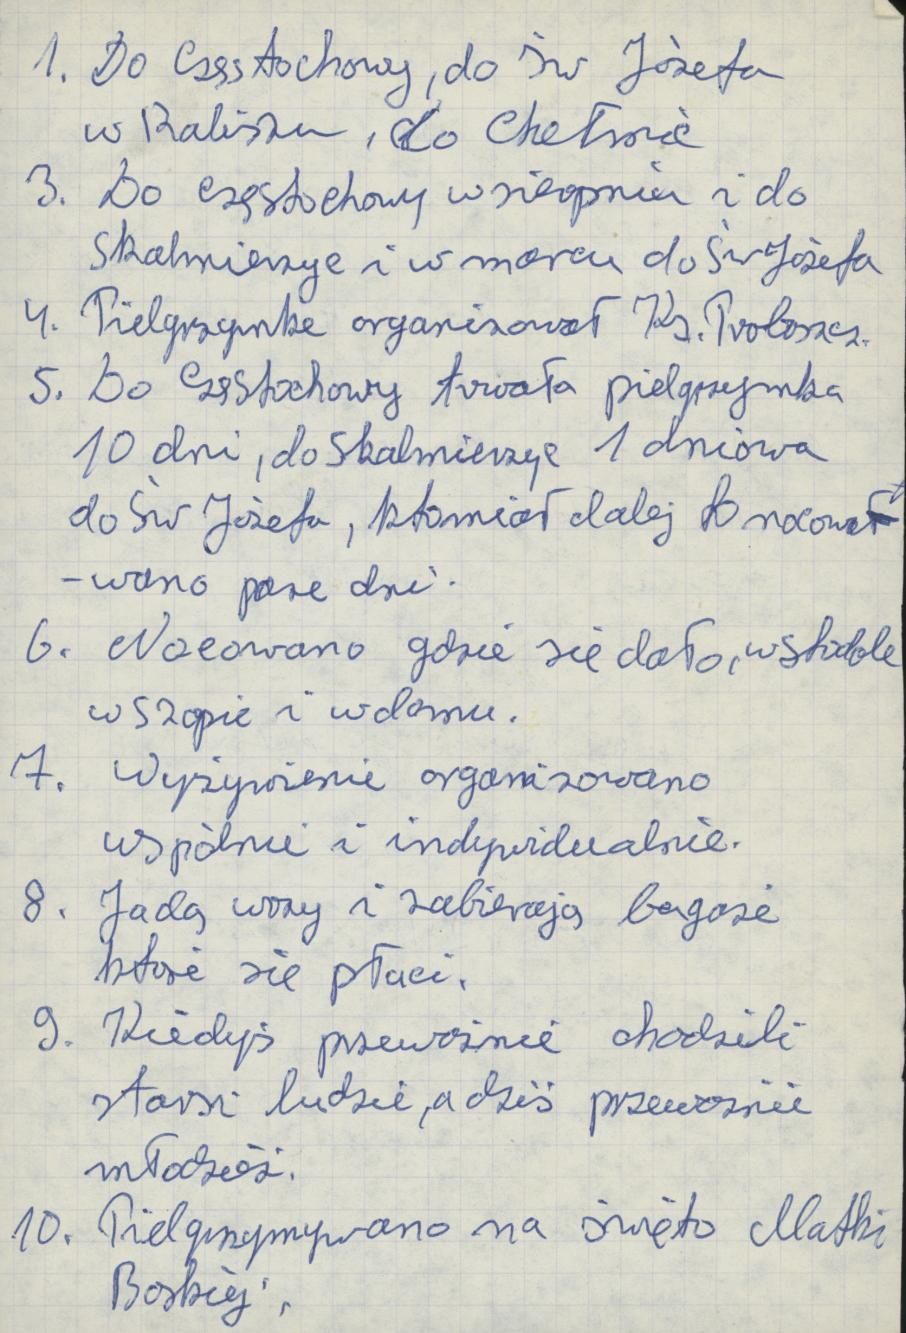 1. Do Częstochowy, do Św Józefa
w Kaliszu, do Chełmie
3. Do Częstochowy w sierpniu i do
Skalmierzyc i w marcu do Św Józefa
4. Pielgrzymke organizował Ks. Proboszcz.
5. Do Częstochowy trwała pielgrzymka
10 dni, do Skalmierzyc 1 dniowa
do Św Józefa, kto miał dalej to nocowa
-wano pare dni.
6. Nocowano gdzie się dało, w stodole
w szopie i w domu.
7. Wyżywienie organizowano
wspólnie i indywidualnie.
8. Jadą wozy i zabierają bagaże
które się płaci.
9. Kiedyś przeważnie chodzili
starsi ludzie, a dziś przeważnie
młodzież.
10. Pielgrzymywano na święto Matki
Boskiej.